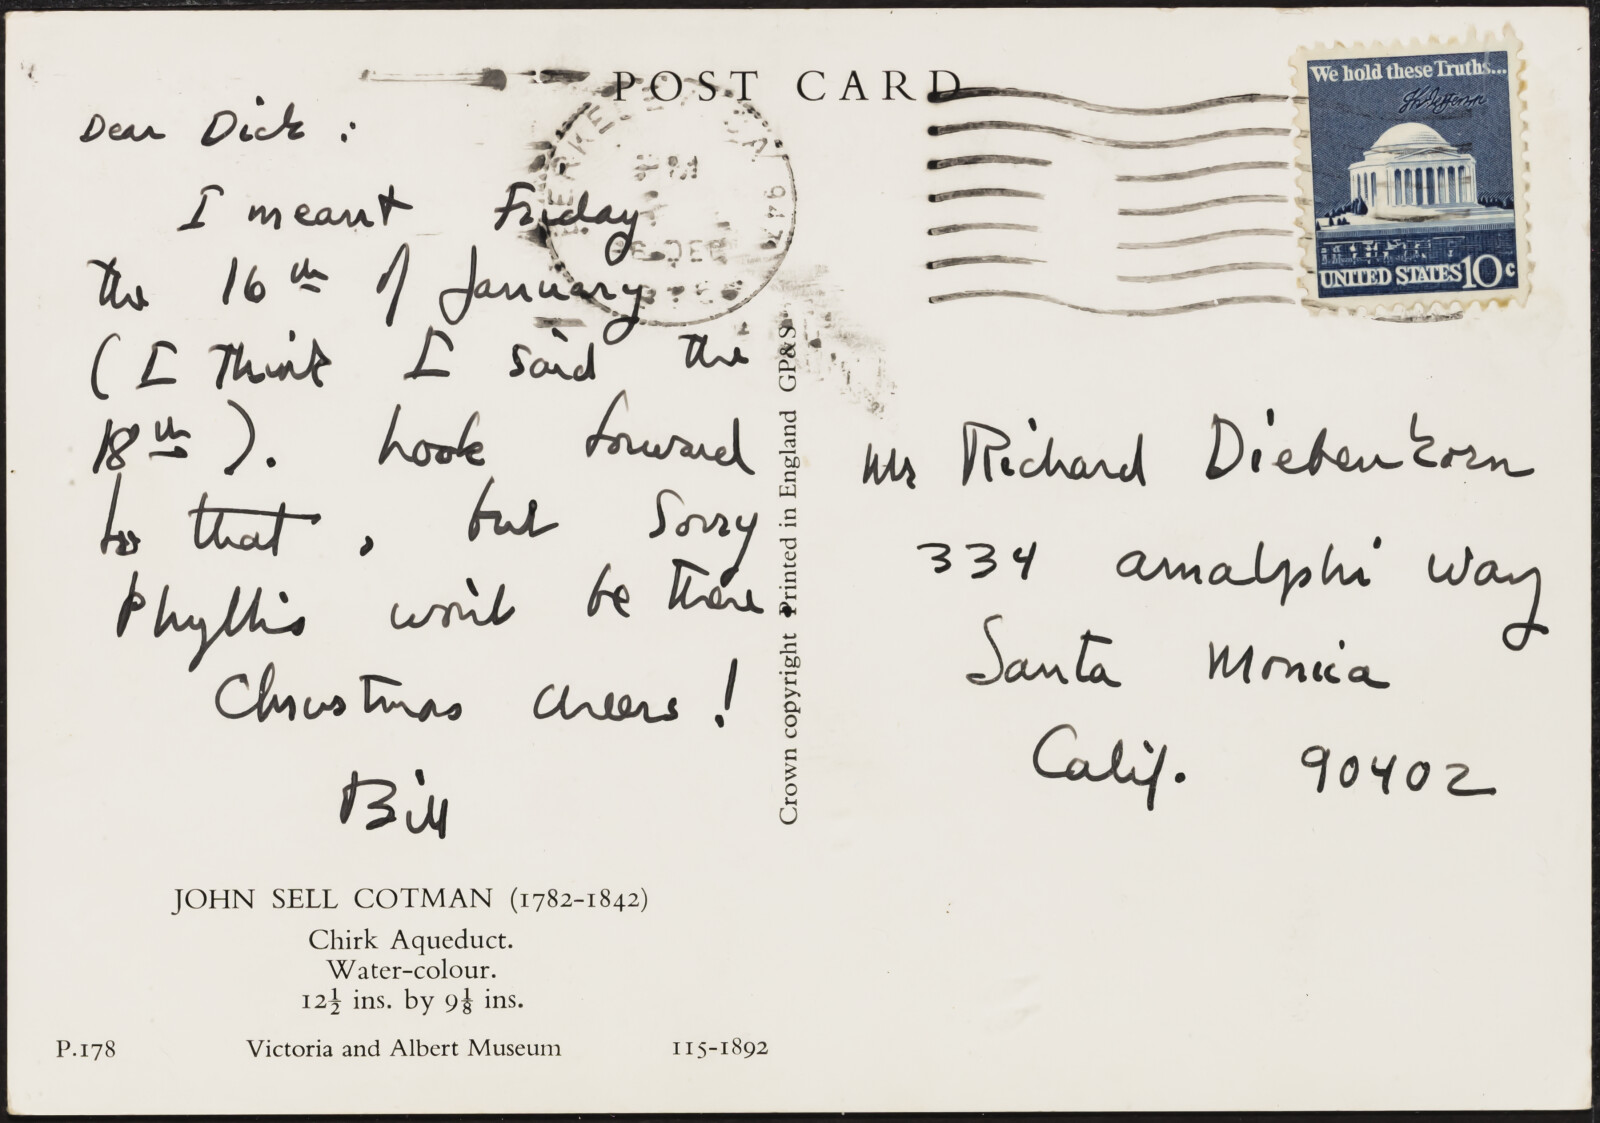 POST CARD
Dear Dick :
I meant Friday
the 16th of January
(I think I said the
18th). Look forward
to that, but sorry
Phyllis won't be there
Christmas cheers!
Bill
JOHN SELL COTMAN (1782-1842)
Chirk Aqueduct.
Water-colour.
12½ ins. by 9⅛ ins.
P.178 Victoria and Albert Museum 115-1892
Crown copyright Printed in England GP&S
We hold these Truths...
UNITED STATES 10c
Mr Richard Diebenkorn
334 Amalphi Way
Santa Monica
Calif. 90402